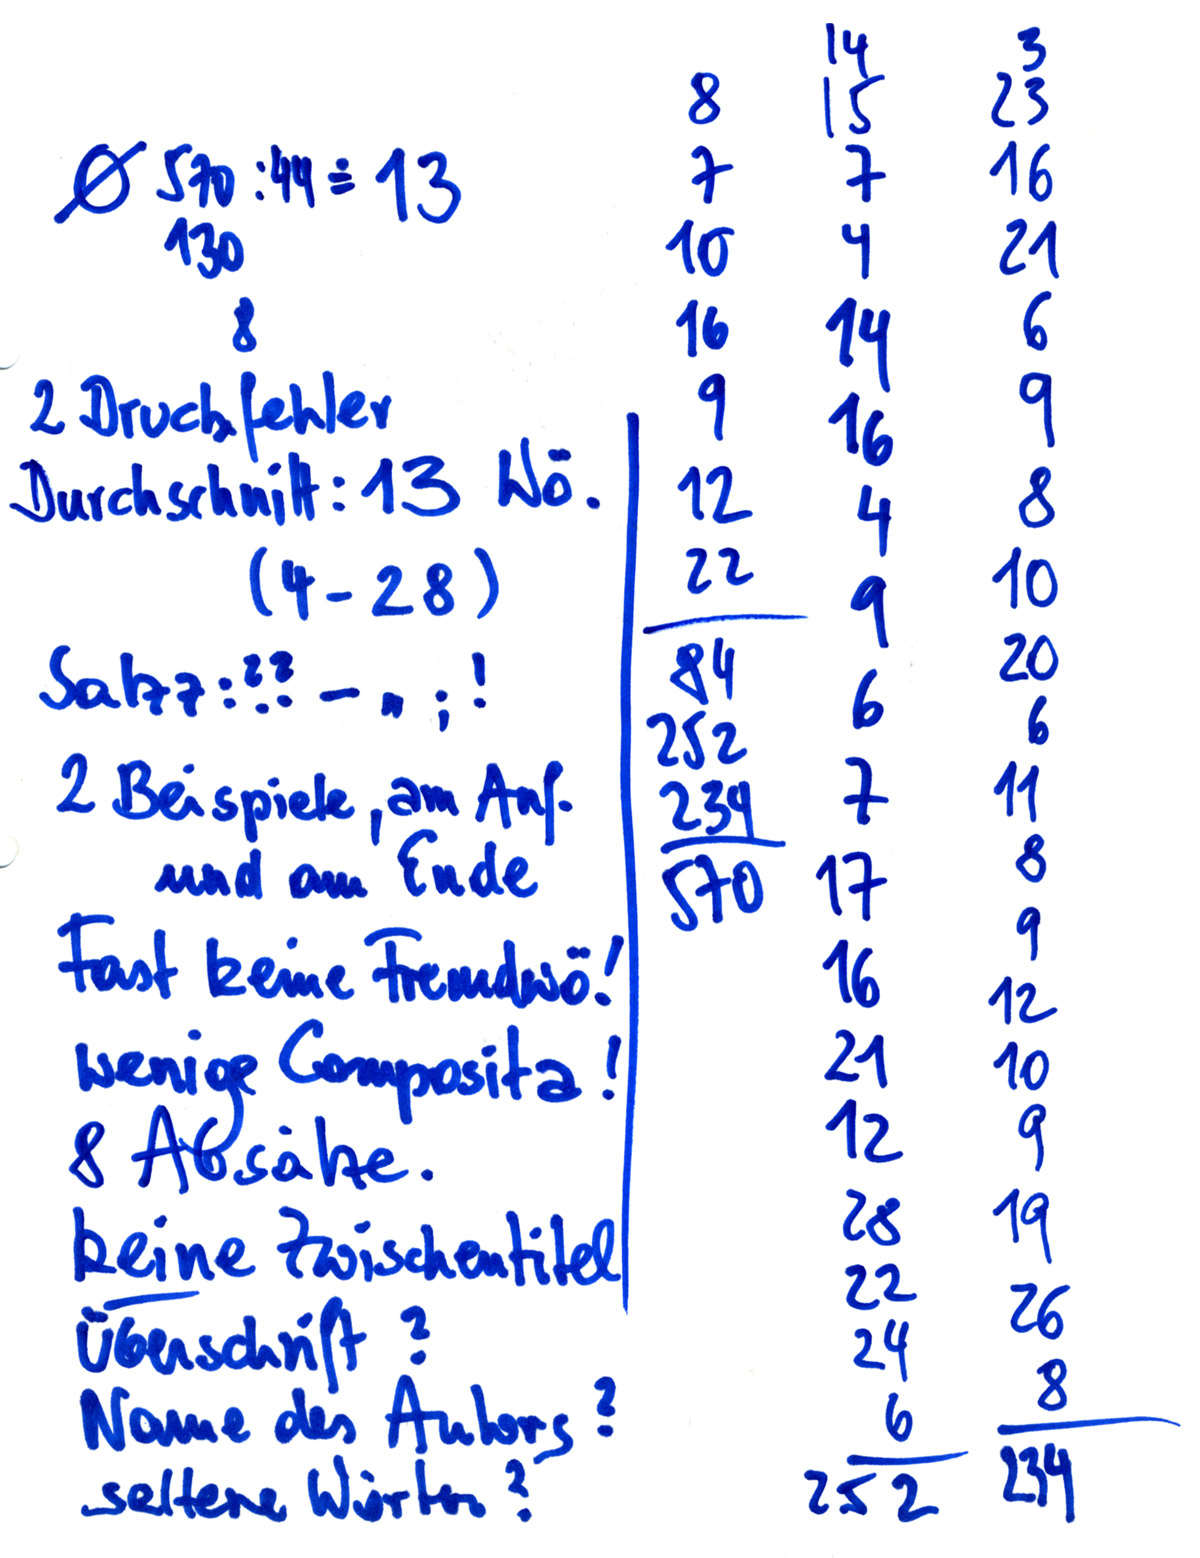 Ø 570 : 44 ≐ 13
130
8
2 Druckfehler
Durchschnitt: 13 Wö.
(4 - 28)
Satzz: ?? – „ ; !
2 Beispiele, am Anf.
und am Ende
Fast keine Fremdwö!
wenige Composita!
8 Absätze.
keine Zwischentitel
Überschrift?
Name des Autors?
seltene Wörter?
8
7
10
16
9
12
22
84
252
234
570
14
15
7
4
14
16
4
9
6
7
17
16
21
12
28
22
24
6
252
3
23
16
21
6
9
8
10
20
6
11
8
9
12
10
9
19
26
8
234